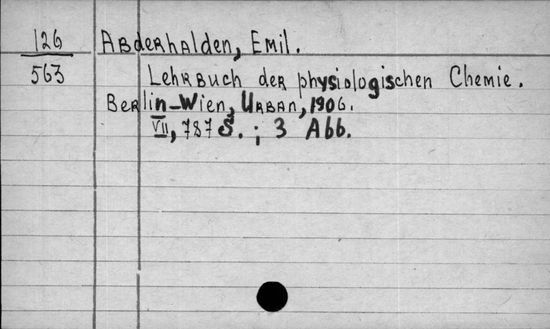 126 Abderhalden, Emil.
563 Lehrbuch der physiologischen Chemie.
Berlin-Wien, Urban, 1906.
VII, 787 S. ; 3 Abb.